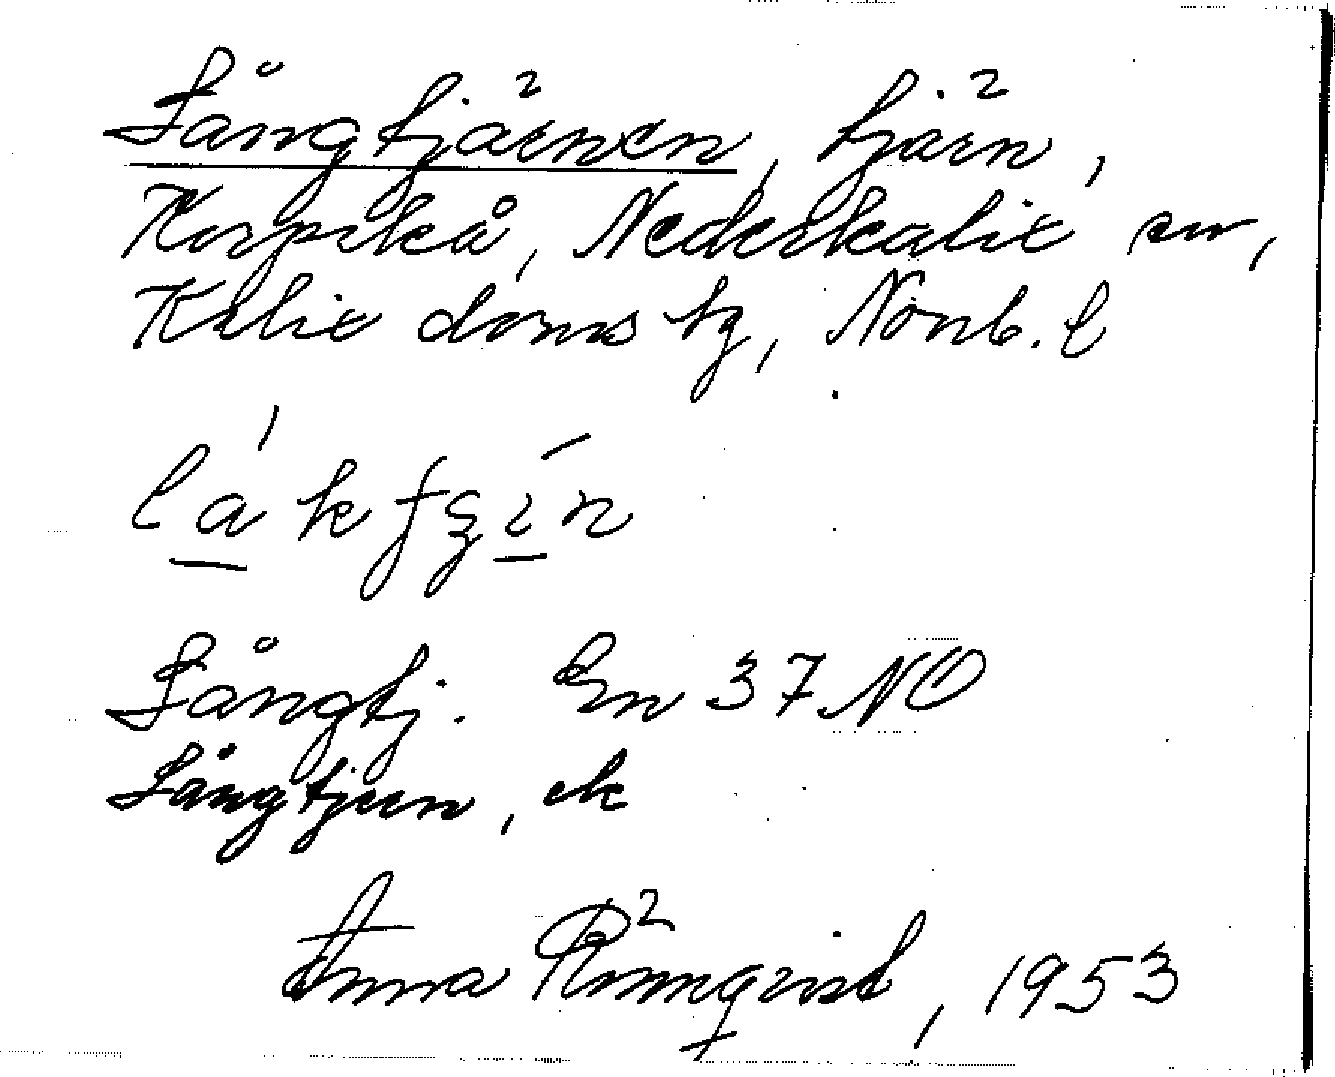 Långtjärnen, tjärn,
Korpikå, Nederkalix sn,
Kalix doms tg, Norrb. l
Långtj. En 37 NO
Långtjern, ek
Anna Rönnqvist, 1953